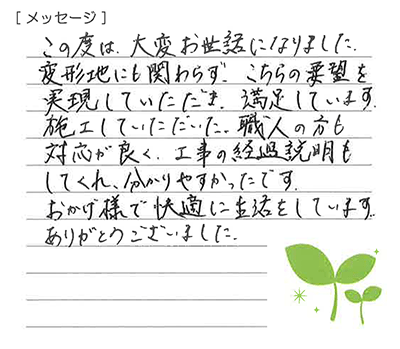 [メッセージ]
この度は、大変お世話になりました。
変形地にも関わらず、こちらの要望を
実現していただき、満足しています。
施工していただいた、職人の方も
対応が良く、工事の経過説明も
してくれ、分かりやすかったです。
おかげ様で快適に生活をしています。
ありがとうございました。